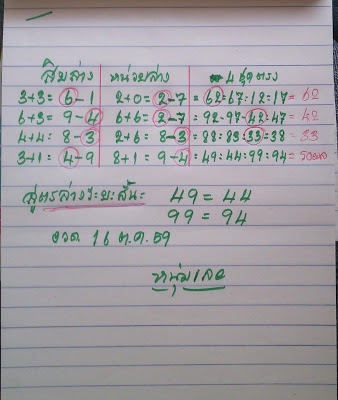 สิบล่าง หน่วยล่าง 4 ชุดตรง
3+3= 6-1 2+0= 2-7 = 62:67:12:17 = 62
6+3= 9-4 6+6= 2-7 = 92-97-42:47 = 42
4+4= 8-3 2+6= 8-3 = 88:83:33:38 = 33
3+1= 4-9 8+1= 9-4 = 49:44:99:94 = รอผล
สูตรล่างระยะสั้น: 49 = 44
99 = 94
งวด 16 ต.ค. 59
หนุ่มเลย